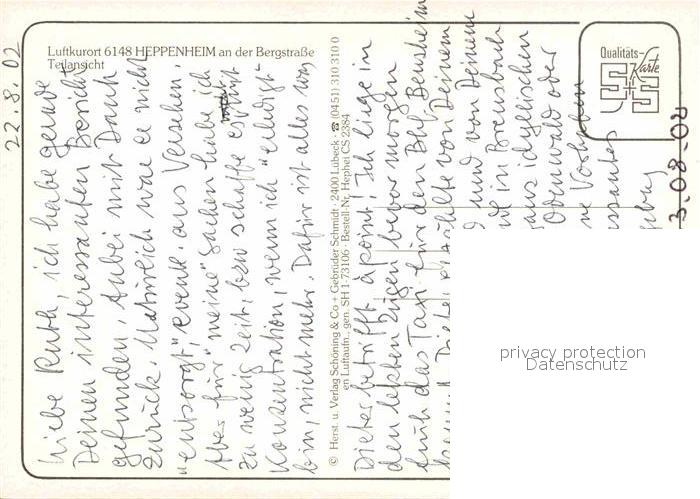 Luftkurort 6148 HEPPENHEIM an der Bergstraße
Teilansicht
Qualitäts-
Karte
S+S
22.8.02
Liebe Ruth, ich habe gerade
Deinen interessanten Bericht
gefunden. Anbei mit Dank
zurück. Natürlich war er nicht
"entsorgt", event. aus Versehen.
Aber für "meine" Sachen habe ich
zu wenig Zeit, bzw schaffe erst
Konzentration, wenn ich "erledigt"
bin, nicht mehr. Dafür ist alles was
© Herst. u. Verlag Schöning & Co + Gebrüder Schmidt, 2400 Lübeck · ☎ (0451) 310 310 0
en Luftaufn., gen. SH 1-73106 · Bestell-Nr. Hephei CS 2384
Dieter betrifft Ich liege in
den letzten Zügen bevor morgen
früh das Taxi für den Bhf. Bensheim
Dieter erzählte von Deinem
und von Deinem
in
aus idyllischen
Odenwald oder
ne
ssantes
3.08.02
privacy protection
Datenschutz